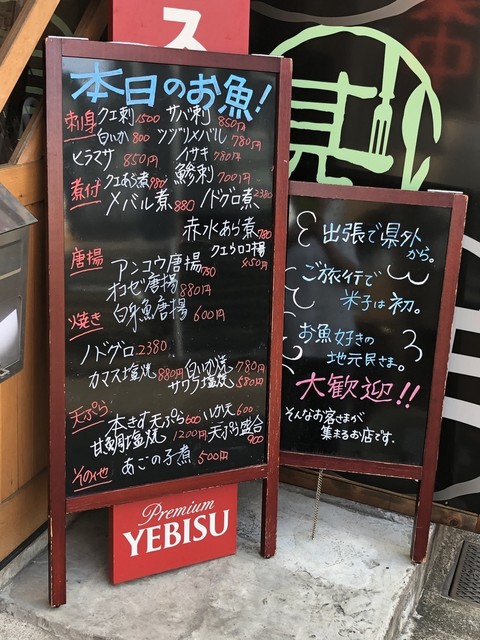 ス
本日のお魚!
刺身 クエ刺 1500 サバ刺 850円
白いか 800 ツヅリメバル 780円
ヒラマサ 850円 イサキ 780円
煮付 クエあら煮 980 鯵刺 700円
メバル煮 880 ノドグロ煮 2380
赤水あら煮 780
唐揚 アンコウ唐揚 750
オコゼ唐揚 880円
白身魚唐揚 600円
焼き
ノドグロ 2380
カマス塩焼 880円 白いか焼 780円
サワラ塩焼 580円
天ぷら 本きす天ぷら 600 いか天 600
甘鯛塩焼 1200円 天ぷら盛合 900
その他 あごの子煮 500円
Premium
YEBISU
出張で県外
から。
ご旅行で
米子は初。
お魚好きの
地元民さま。
大歓迎!!
そんなお客さまが
集まるお店です.